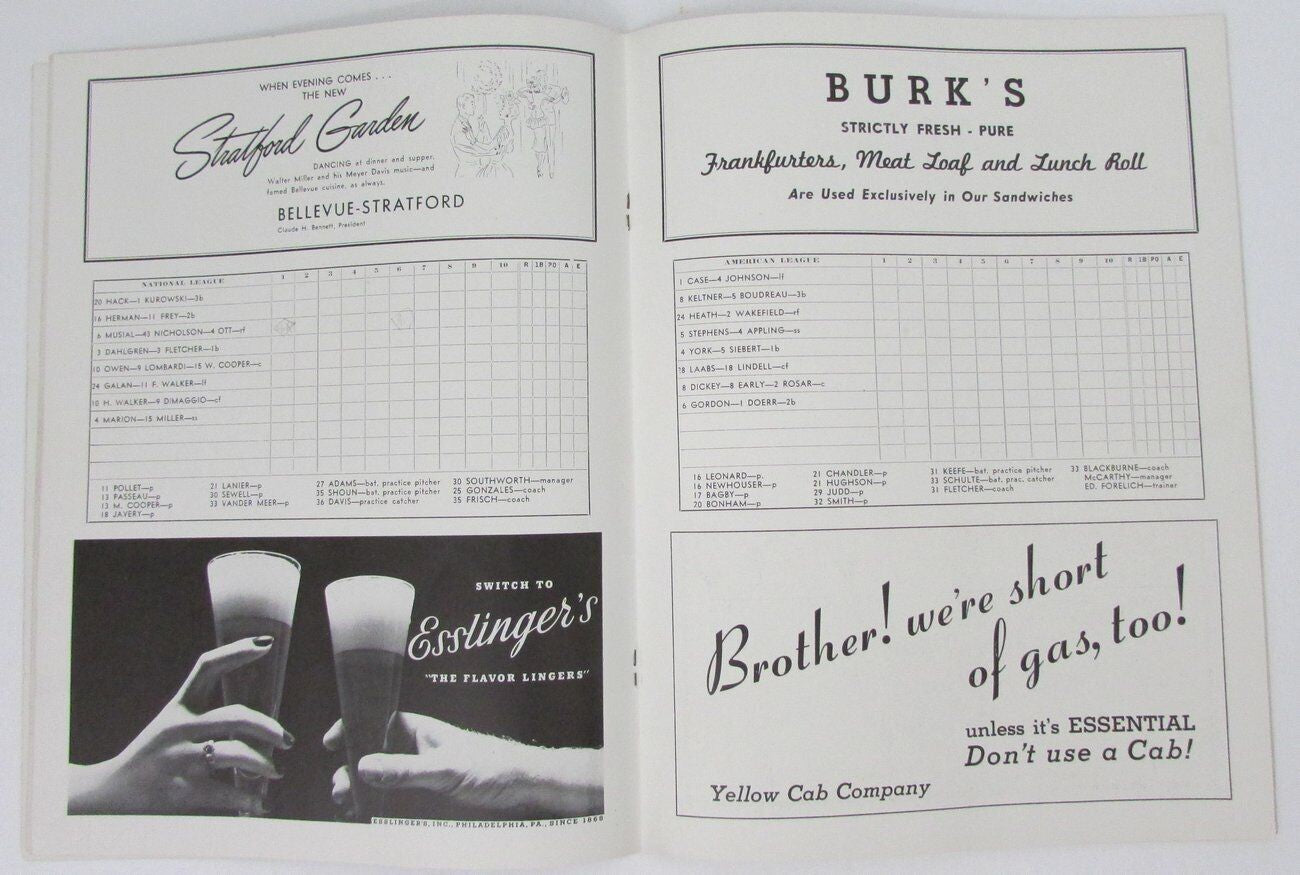 WHEN EVENING COMES . . .
THE NEW
Stratford Garden
DANCING at dinner and supper.
Walter Miller and his Meyer Davis music—and
famed Bellevue cuisine, as always.
BELLEVUE-STRATFORD
Claude H. Bennett, President
NATIONAL LEAGUE 1 2 3 4 5 6 7 8 9 10 R 1B PO A E
20 HACK—1 KUROWSKI—3b
16 HERMAN—11 FREY—2b
6 MUSIAL—43 NICHOLSON—4 OTT—rf
3 DAHLGREN—3 FLETCHER—1b
10 OWEN—9 LOMBARDI—15 W. COOPER—c
24 GALAN—11 F. WALKER—lf
10 H. WALKER—9 DiMAGGIO—cf
4 MARION—15 MILLER—ss
11 POLLET—p
13 PASSEAU—p
13 M. COOPER—p
18 JAVERY—p
21 LANIER—p
30 SEWELL—p
33 VANDER MEER—p
27 ADAMS—bat. practice pitcher
35 SHOUN—bat. practice pitcher
36 DAVIS—practice catcher
30 SOUTHWORTH—manager
25 GONZALES—coach
35 FRISCH—coach
SWITCH TO
Esslinger's
"THE FLAVOR LINGERS"
ESSLINGER'S, INC., PHILADELPHIA, PA., SINCE 1868
BURK'S
STRICTLY FRESH - PURE
Frankfurters, Meat Loaf and Lunch Roll
Are Used Exclusively in Our Sandwiches
AMERICAN LEAGUE 1 2 3 4 5 6 7 8 9 10 R 1B PO A E
1 CASE—4 JOHNSON—lf
8 KELTNER—5 BOUDREAU—3b
24 HEATH—2 WAKEFIELD—rf
5 STEPHENS—4 APPLING—ss
4 YORK—5 SIEBERT—1b
18 LAABS—18 LINDELL—cf
8 DICKEY—8 EARLY—2 ROSAR—c
6 GORDON—1 DOERR—2b
16 LEONARD—p.
16 NEWHOUSER—p
17 BAGBY—p
20 BONHAM—p
21 CHANDLER—p
21 HUGHSON—p
29 JUDD—p
32 SMITH—p
31 KEEFE—bat. practice pitcher
33 SCHULTE—bat. prac. catcher
31 FLETCHER—coach
33 BLACKBURNE—coach
McCARTHY—manager
ED. FORELICH—trainer
Brother! we're short
of gas, too!
unless it's ESSENTIAL
Don't use a Cab!
Yellow Cab Company